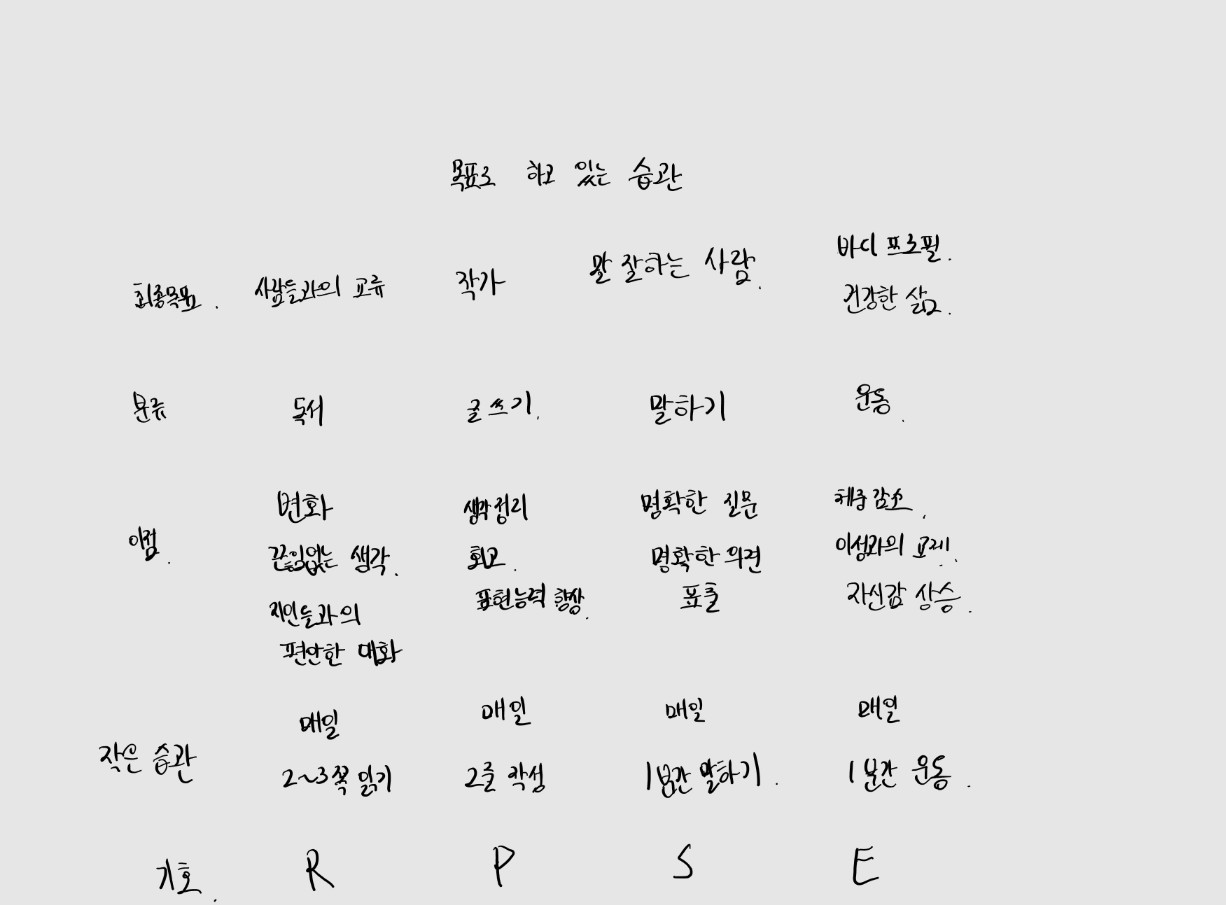 목표로 하고 있는 습관
최종목표. 사람들과의 교류 작가 말 잘하는 사람. 바디 프로필.
건강한 삶.
분류 독서 글쓰기. 말하기 운동.
이점. 변화 생각정리 명확한 질문 체중 감소.
끈임없는 생각. 회고. 명확한 의견 이성과의 교제.
지인들과의 표현능력 향상. 표출 자신감 상승.
편안한 대화
작은 습관 매일 매일 매일 매일
2~3쪽 읽기 2줄 작성 1분간 말하기. 1분간 운동.
기호. R P S E